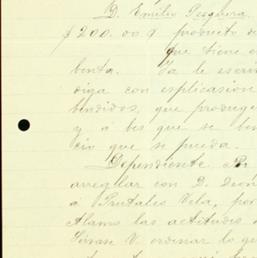 D. Emilio Pesqueira
$200.00 q producto de
Que tiene e
benta. Ya le escri
diga con esplicasion
bendidos, que produge
y a bes que se ben
cio que se pueda.
Dependiente
arreglar con D. Leon
a Prutales Vela, por
Alamo las actitudes
Sirvase V. ordenar lo que